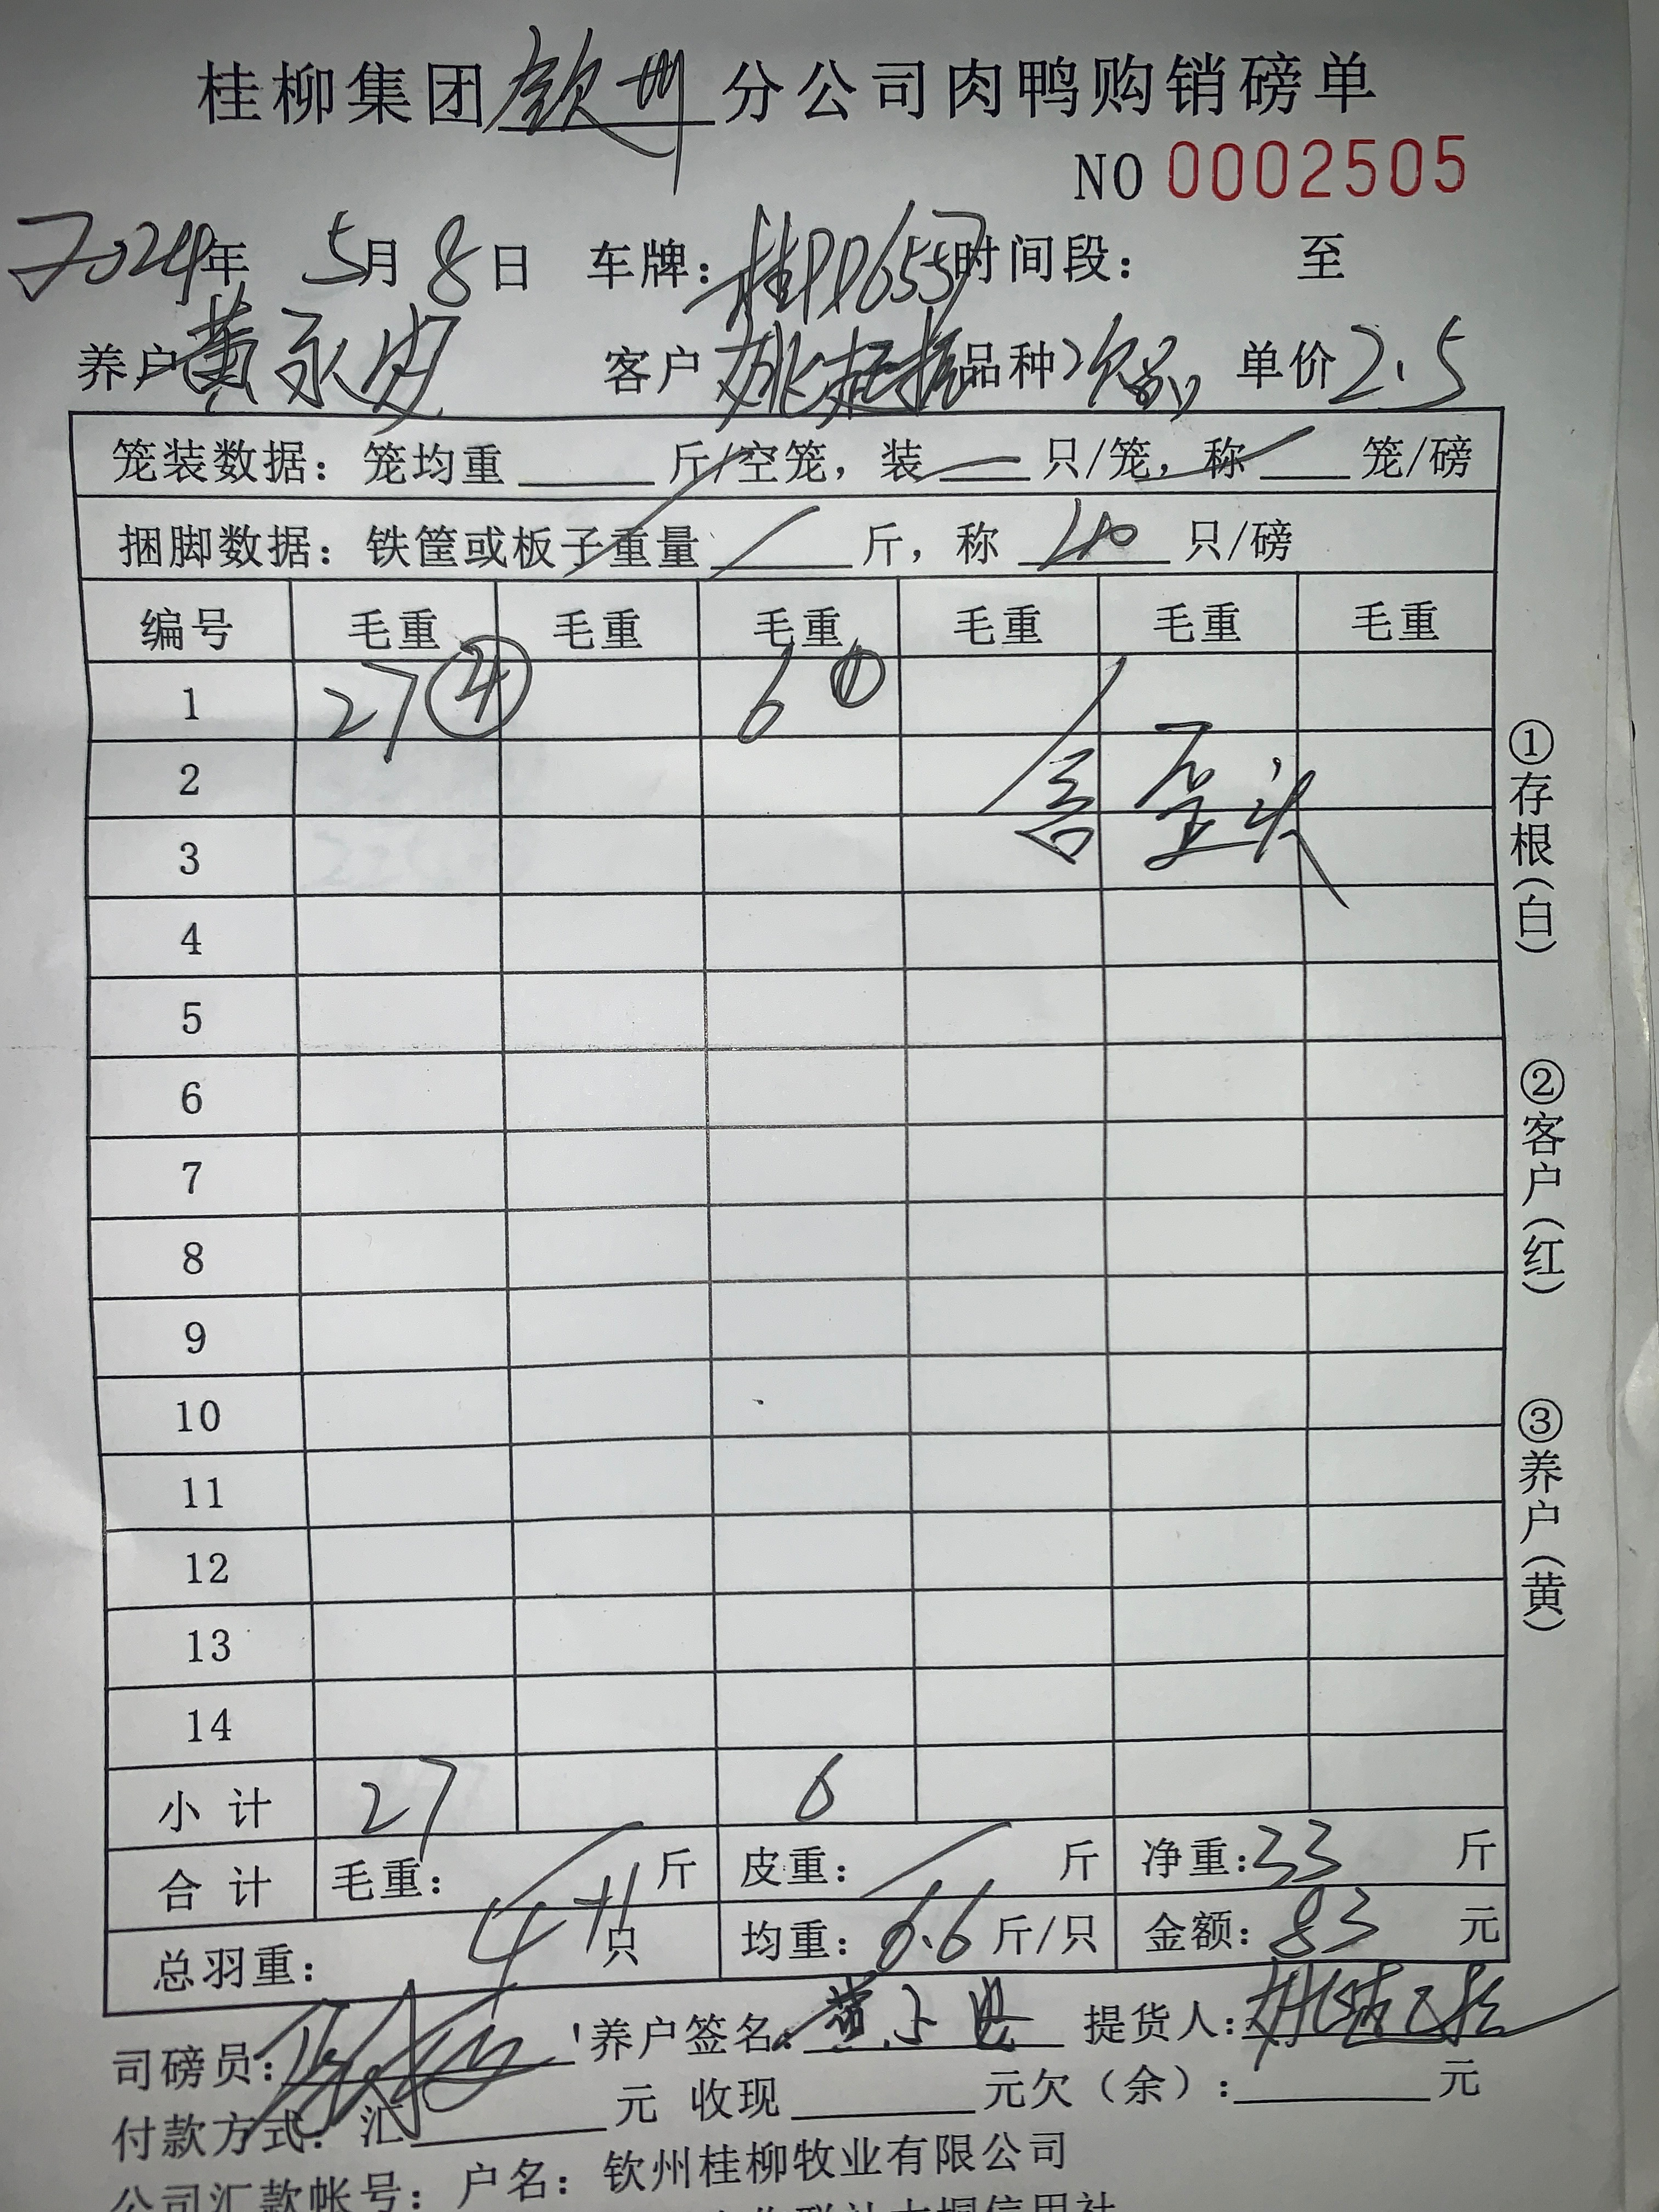 桂柳集团钦州分公司肉鸭购销磅单
NO 0002505
2024年 5月8日 车牌：桂PD6557时间段： 至
养户黄永 客户姚 品种次品 单价2.5
笼装数据：笼均重 斤/空笼，装 只/笼，称 笼/磅
捆脚数据：铁筐或板子重量 斤，称 只/磅
编号 毛重 毛重 毛重 毛重 毛重 毛重
1 27④ 6①
2 歪头
3
4
5
6
7
8
9
10
11
12
13
14
小计 27 6
合计 毛重： 斤 皮重： 斤 净重：33 斤
总羽重： 4+1只 均重：6.6斤/只 金额：83 元
司磅员： 养户签名：黄 提货人：姚
付款方式：汇 元 收现 元欠（余）： 元
公司汇款帐号：户名：钦州桂柳牧业有限公司
①存根（白）
②客户（红）
③养户（黄）